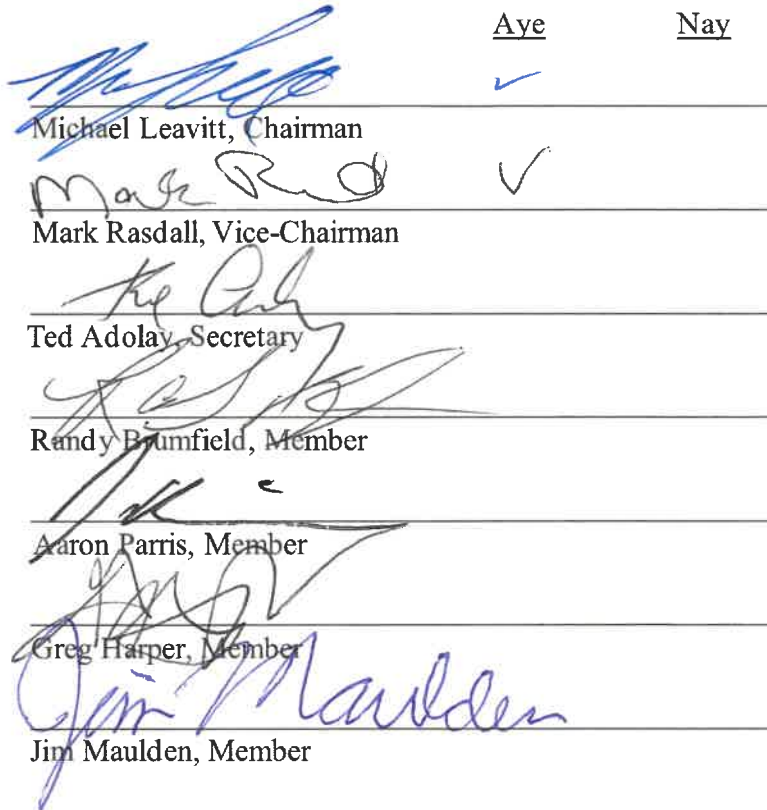 Aye Nay
✓
Michael Leavitt, Chairman
Mark ✓
Mark Rasdall, Vice-Chairman
Ted Adolay, Secretary
Randy Brumfield, Member
Aaron Parris, Member
Greg Harper, Member
Jim Maulden
Jim Maulden, Member